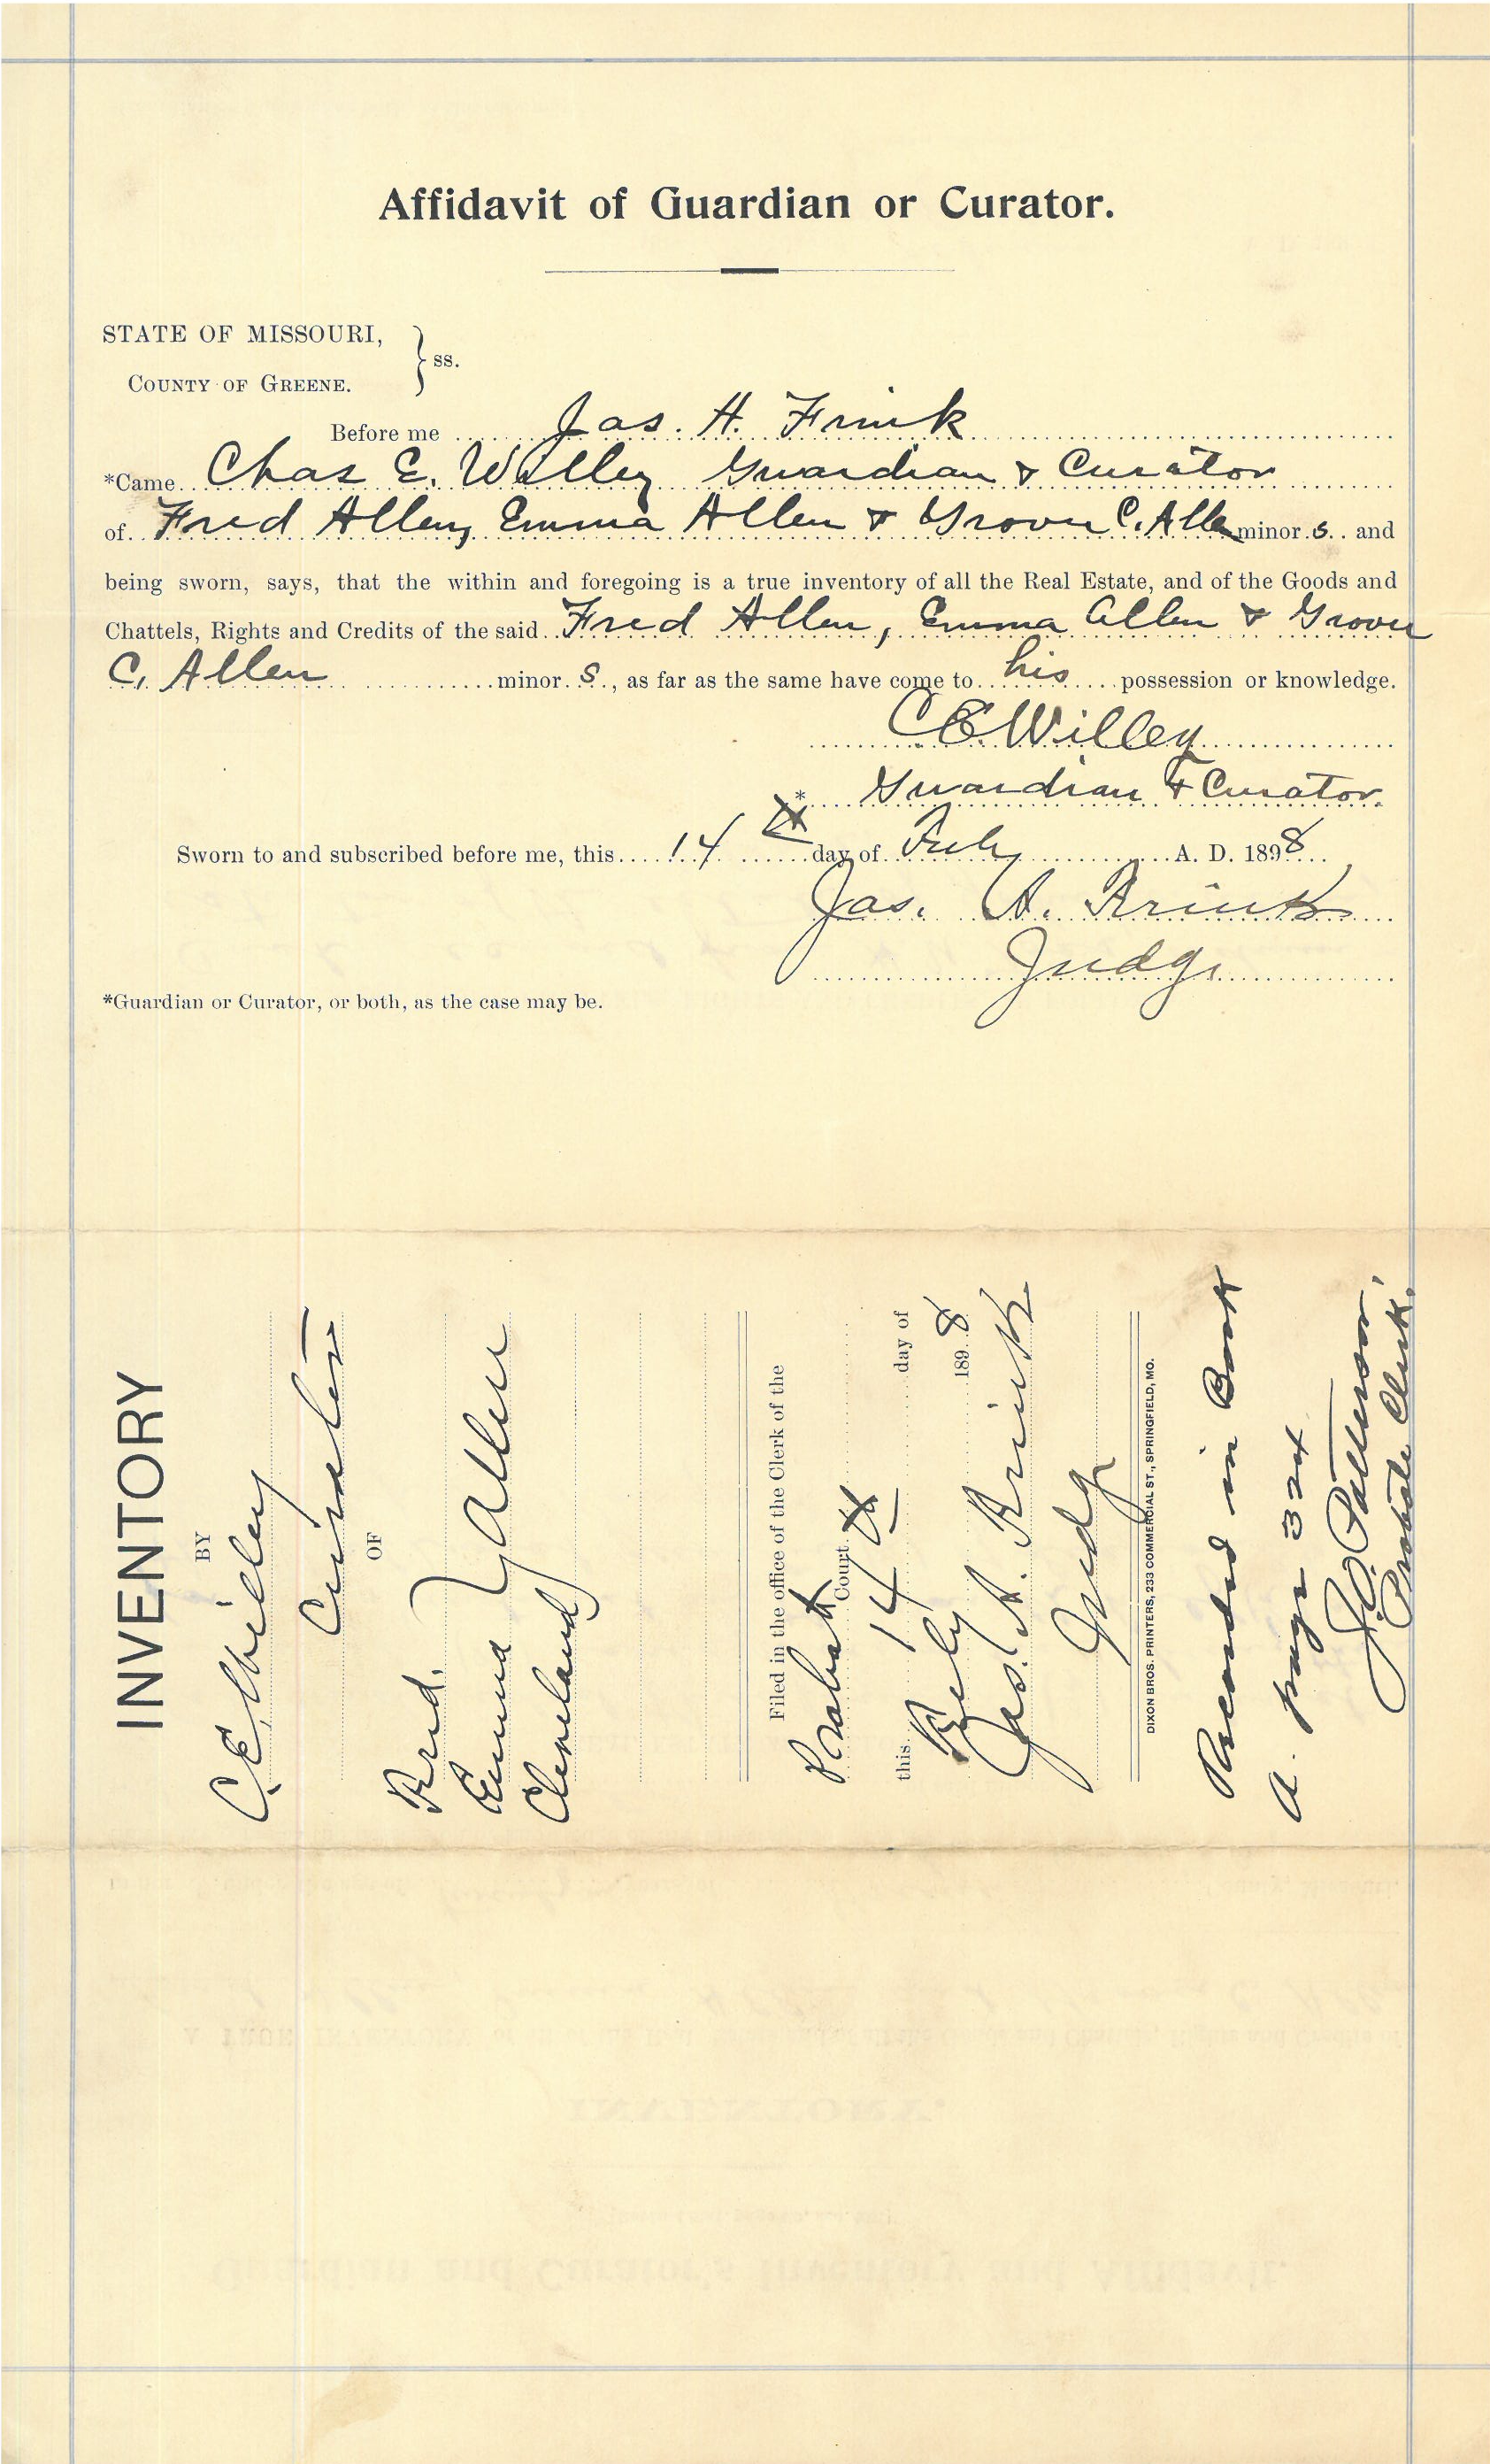 Affidavit of Guardian or Curator.
STATE OF MISSOURI,
COUNTY OF GREENE. } ss.
Before me Jas. H. Frink
*Came Chas E. Willey Guardian & Curator
of Fred Allen, Emma Allen & Grover C. Allen minor s and
being sworn, says, that the within and foregoing is a true inventory of all the Real Estate, and of the Goods and
Chattels, Rights and Credits of the said Fred Allen, Emma Allen & Grover
C. Allen minor s, as far as the same have come to his possession or knowledge.
C E Willey
* Guardian & Curator.
Sworn to and subscribed before me, this 14 th day of July A. D. 1898
Jas. H. Frink
Judge
*Guardian or Curator, or both, as the case may be.
INVENTORY
BY
C. E. Willey
Curator
OF
Fred.
Emma } Allen
Cleveland
Filed in the office of the Clerk of the
Probate Court
this 14 th day of
July 1898
Jas. H. Frink
Judge
DIXON BROS. PRINTERS, 233 COMMERCIAL ST., SPRINGFIELD, MO.
Recorded in Book
A. page 324
Patterson,
Probate Clerk.